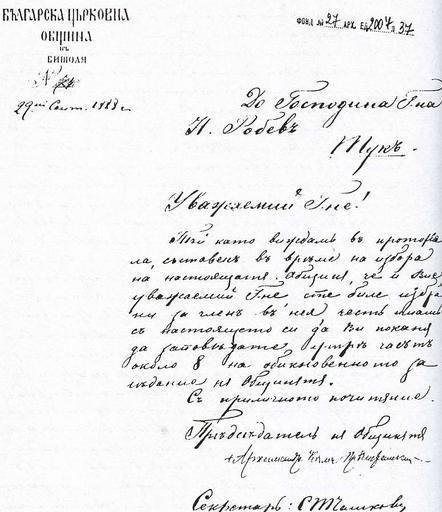 БЪЛГАРСКА ЦЪРКОВНА
ОБЩИНА
въ
БИТОЛЯ
№
29ий Септ. 1888 г.
ФОНД № 27 АРХ. ЕД. 2007 Л. 37
До Господина Гна
Н. Робевъ
Тукъ.
Уважаемий Гне!
Тъй като виждамъ въ протоко
ла, съставенъ въ время на избора
на настоящата Община, че и Вие
уважаемий Гне сте биле избра
ни за членъ въ нея честь имамъ
съ настоящето си да Ви поканя
да заповядате утре часътъ
около 8 на обикновенното за
седание на Общината.
Съ приличното почитание.
Предсѣдатель на Общината
Архимандр.
Секретарь: